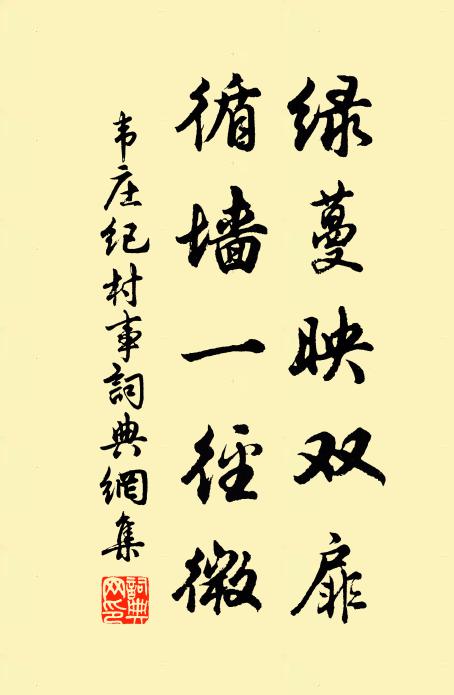 绿蔓映双扉
循墙一径微
韦庄纪村事詞典網集
詞典网印